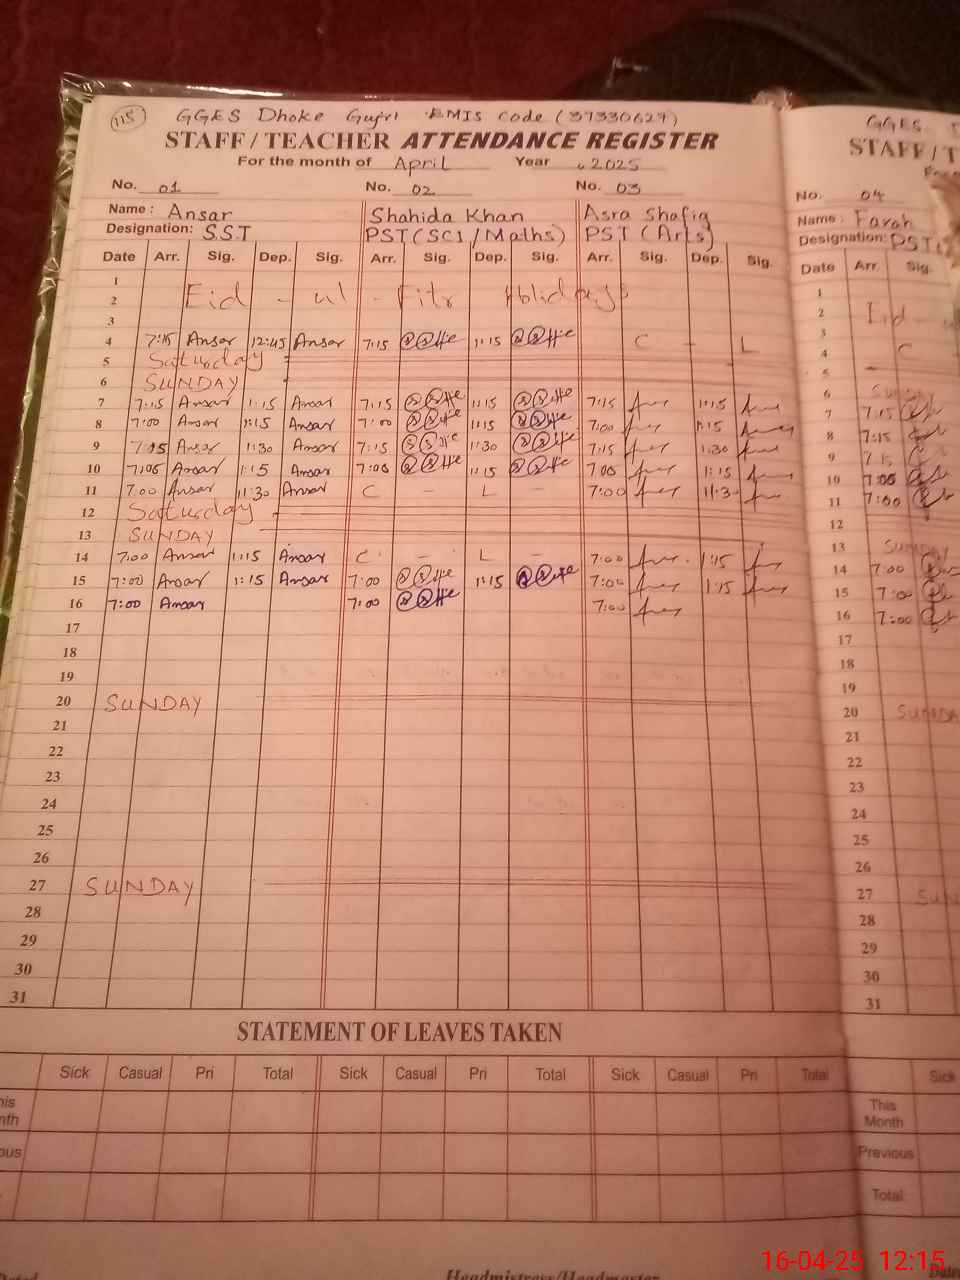 115 GGES Dhoke Gujri EMIS Code (37330627)
STAFF / TEACHER ATTENDANCE REGISTER
For the month of April Year 2025
No. 01 No. 02 No. 03
Name : Ansar Shahida Khan Asra Shafiq
Designation: S.S.T PST (SCI / Maths) PST (Arts)
Date Arr. Sig. Dep. Sig. Arr. Sig. Dep. Sig. Arr. Sig. Dep. Sig.
1
2 Eid - ul - Fitr Holidays
3
4 7:15 Ansar 12:45 Ansar 7:15 1:15 C - L
5 Saturday
6 SUNDAY
7 7:15 Ansar 1:15 Ansar 7:15 1:15 7:15 1:15
8 7:00 Ansar 1:15 Ansar 7:00 1:15 7:00 1:15
9 7:15 Ansar 1:30 Ansar 7:15 1:30 7:15 1:30
10 7:05 Ansar 1:15 Ansar 7:00 1:15 7:00 1:15
11 7:00 Ansar 11:30 Ansar C - L - 7:00 11:3
12 Saturday
13 SUNDAY
14 7:00 Ansar 1:15 Ansar C - L - 7:00 1:15
15 7:00 Ansar 1:15 Ansar 7:00 1:15 7:00 1:15
16 7:00 Ansar 7:00 7:00
17
18
19
20 SUNDAY
21
22
23
24
25
26
27 SUNDAY
28
29
30
31
STATEMENT OF LEAVES TAKEN
Sick Casual Pri Total Sick Casual Pri Total Sick Casual Pri Total
Headmistress/Headmaster
GGES
STAFF / T
No. 04
Name : Farah
Designation: PST
Date Arr. Sig.
1
2 Eid
3
4 C
5
6 SUNDAY
7 7:15
8 7:15
9 7:15
10 7:00
11 7:00
12
13 SUNDAY
14 7:00
15 7:00
16 7:00
17
18
19
20 SUNDA
21
22
23
24
25
26
27 SUN
28
29
30
31
Sick
This Month
Previous
Total
16-04-25 12:15